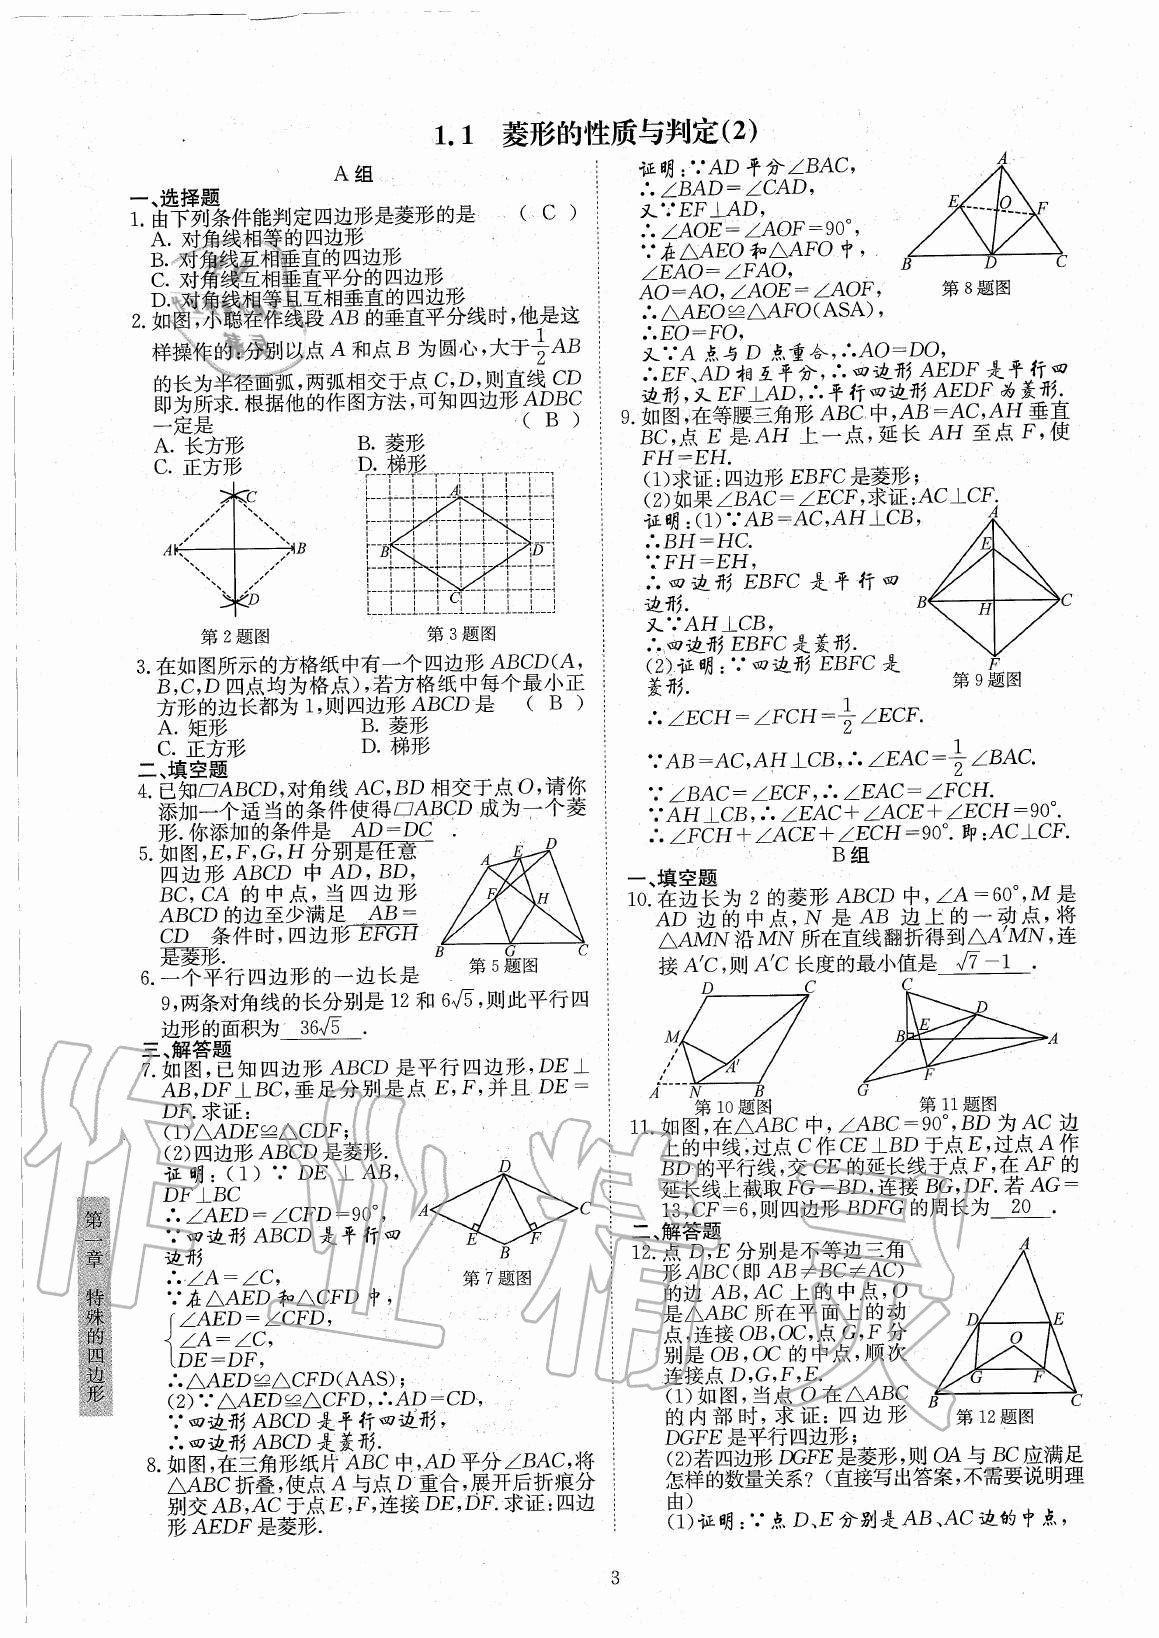 1.1 菱形的性质与判定(2)
A组
一、选择题
1. 由下列条件能判定四边形是菱形的是 ( C )
A. 对角线相等的四边形
B. 对角线互相垂直的四边形
C. 对角线互相垂直平分的四边形
D. 对角线相等且互相垂直的四边形
2. 如图,小聪在作线段 AB 的垂直平分线时,他是这
样操作的:分别以点 A 和点 B 为圆心,大于 1/2 AB
的长为半径画弧,两弧相交于点 C,D,则直线 CD
即为所求. 根据他的作图方法,可知四边形 ADBC
一定是 ( B )
A. 长方形 B. 菱形
C. 正方形 D. 梯形
C
A B
D
第2题图
A
B D
C
第3题图
3. 在如图所示的方格纸中有一个四边形 ABCD(A,
B,C,D 四点均为格点),若方格纸中每个最小正
方形的边长都为 1,则四边形 ABCD 是 ( B )
A. 矩形 B. 菱形
C. 正方形 D. 梯形
二、填空题
4. 已知▱ABCD,对角线 AC,BD 相交于点 O,请你
添加一个适当的条件使得▱ABCD 成为一个菱
形. 你添加的条件是 AD=DC .
5. 如图,E,F,G,H 分别是任意
四边形 ABCD 中 AD,BD,
BC,CA 的中点,当四边形
ABCD 的边至少满足 AB=
CD 条件时,四边形 EFGH
是菱形.
A E D
F H
B G C
第5题图
6. 一个平行四边形的一边长是
9,两条对角线的长分别是 12 和 6√5,则此平行四
边形的面积为 36√5 .
三、解答题
7. 如图,已知四边形 ABCD 是平行四边形,DE⊥
AB,DF⊥BC,垂足分别是点 E,F,并且 DE=
DF. 求证:
(1)△ADE≌△CDF;
(2)四边形 ABCD 是菱形.
证明:(1)∵DE⊥AB,
DF⊥BC
∴∠AED=∠CFD=90°,
∵四边形 ABCD 是平行四
边形
∴∠A=∠C,
∵在△AED 和△CFD 中,
∠AED=∠CFD,
∠A=∠C,
DE=DF,
∴△AED≌△CFD(AAS);
(2)∵△AED≌△CFD,∴AD=CD,
∵四边形 ABCD 是平行四边形,
∴四边形 ABCD 是菱形.
D
A C
E F
B
第7题图
8. 如图,在三角形纸片 ABC 中,AD 平分∠BAC,将
△ABC 折叠,使点 A 与点 D 重合,展开后折痕分
别交 AB,AC 于点 E,F,连接 DE,DF. 求证:四边
形 AEDF 是菱形.
证明:∵AD 平分∠BAC,
∴∠BAD=∠CAD,
又∵EF⊥AD,
∴∠AOE=∠AOF=90°,
∵在△AEO 和△AFO 中,
∠EAO=∠FAO,
AO=AO,∠AOE=∠AOF,
∴△AEO≌△AFO(ASA),
∴EO=FO,
又∵A 点与 D 点重合,∴AO=DO,
∴EF、AD 相互平分,∴四边形 AEDF 是平行四
边形,又 EF⊥AD,∴平行四边形 AEDF 为菱形.
A
E O F
B D C
第8题图
9. 如图,在等腰三角形 ABC 中,AB=AC,AH 垂直
BC,点 E 是 AH 上一点,延长 AH 至点 F,使
FH=EH.
(1)求证:四边形 EBFC 是菱形;
(2)如果∠BAC=∠ECF,求证:AC⊥CF.
证明:(1)∵AB=AC,AH⊥CB,
∴BH=HC.
∵FH=EH,
∴四边形 EBFC 是平行四
边形.
又∵AH⊥CB,
∴四边形 EBFC 是菱形.
(2)证明:∵四边形 EBFC 是
菱形.
∴∠ECH=∠FCH=1/2∠ECF.
∵AB=AC,AH⊥CB,∴∠EAC=1/2∠BAC.
∵∠BAC=∠ECF,∴∠EAC=∠FCH.
∵AH⊥CB,∴∠EAC+∠ACE+∠ECH=90°.
∴∠FCH+∠ACE+∠ECH=90°. 即:AC⊥CF.
A
E
B H C
F
第9题图
B组
一、填空题
10. 在边长为 2 的菱形 ABCD 中,∠A=60°,M 是
AD 边的中点,N 是 AB 边上的一动点,将
△AMN 沿 MN 所在直线翻折得到△A′MN,连
接 A′C,则 A′C 长度的最小值是 √7-1 .
D C
M
A′
A N B
第10题图
C
D
B E A
F
G
第11题图
11. 如图,在△ABC 中,∠ABC=90°,BD 为 AC 边
上的中线,过点 C 作 CE⊥BD 于点 E,过点 A 作
BD 的平行线,交 CE 的延长线于点 F,在 AF 的
延长线上截取 FG=BD,连接 BG,DF. 若 AG=
13,CF=6,则四边形 BDFG 的周长为 20 .
二、解答题
12. 点 D,E 分别是不等边三角
形 ABC(即 AB≠BC≠AC)
的边 AB,AC 上的中点,O
是△ABC 所在平面上的动
点,连接 OB,OC,点 G,F 分
别是 OB,OC 的中点,顺次
连接点 D,G,F,E.
(1)如图,当点 O 在△ABC
的内部时,求证:四边形
DGFE 是平行四边形;
(2)若四边形 DGFE 是菱形,则 OA 与 BC 应满足
怎样的数量关系?(直接写出答案,不需要说明理
由)
(1)证明:∵点 D、E 分别是 AB、AC 边的中点,
A
D E
O
G F
B C
第12题图
第一章 特殊的四边形
3
作业精灵